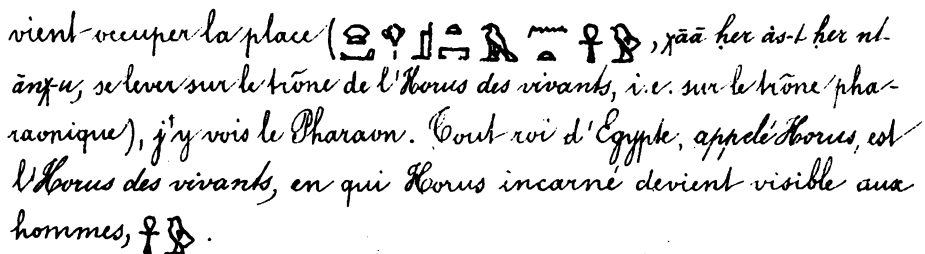 vient occuper la place (, χāā ḥer ȧs-t ḥer nt-
ānχ-u, se lever sur le trône de l'Horus des vivants, i.e. sur le trône pha-
raonique), j'y vois le Pharaon. Tout roi d'Egypte, appelé Horus, est
l'Horus des vivants, en qui Horus incarné devient visible aux
hommes, .